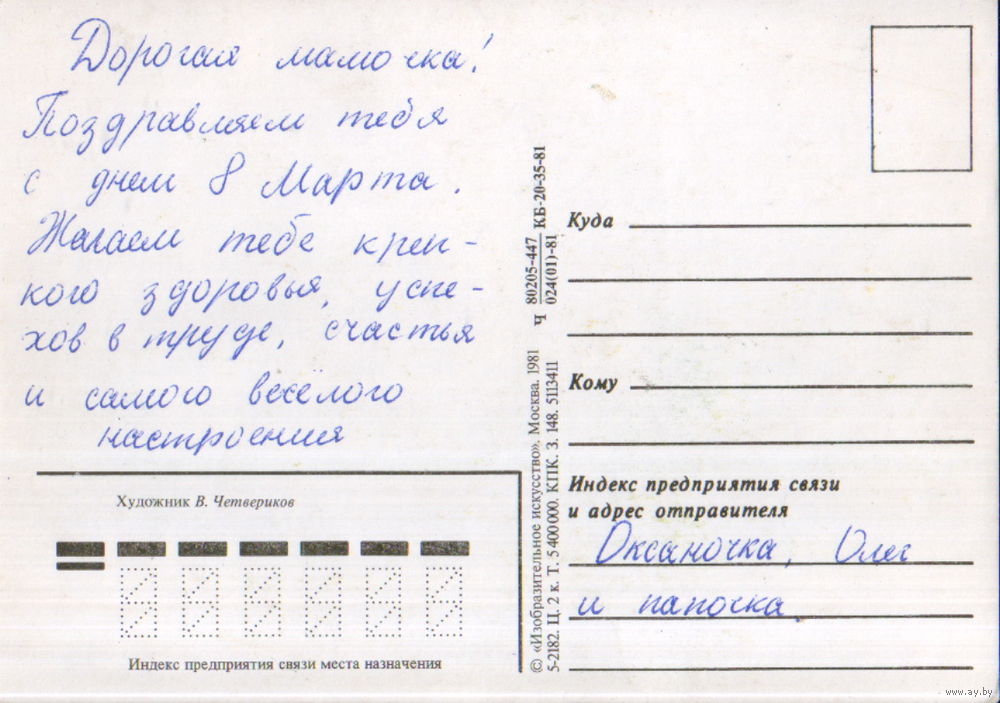 Дорогая мамочка!
Поздравляем тебя
с днем 8 Марта.
Желаем тебе креп-
кого здоровья, успе-
хов в труде, счастья
и самого весёлого
настроения
Художник В. Четвериков
Индекс предприятия связи места назначения
© «Изобразительное искусство». Москва. 1981
5-2182. Ц. 2 к. Т. 5 400 000. КПК. З. 148. 5113411
Ч 80205-447 КБ-20-35-81
024(01)-81
Куда
Кому
Индекс предприятия связи
и адрес отправителя
Оксаночка, Олег
и папочка.
www.ay.by